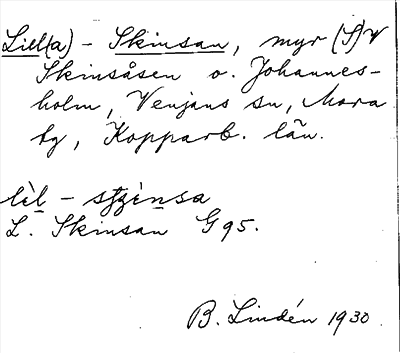 Lill(a) - Skinsan, myr (S)V
Skinsåsen o. Johannes-
holm, Venjans sn, Mora
tg, Kopparb. län.
lèl - sʃʒènsa
L. Skinsan G 95.
B. Lindén 1930.